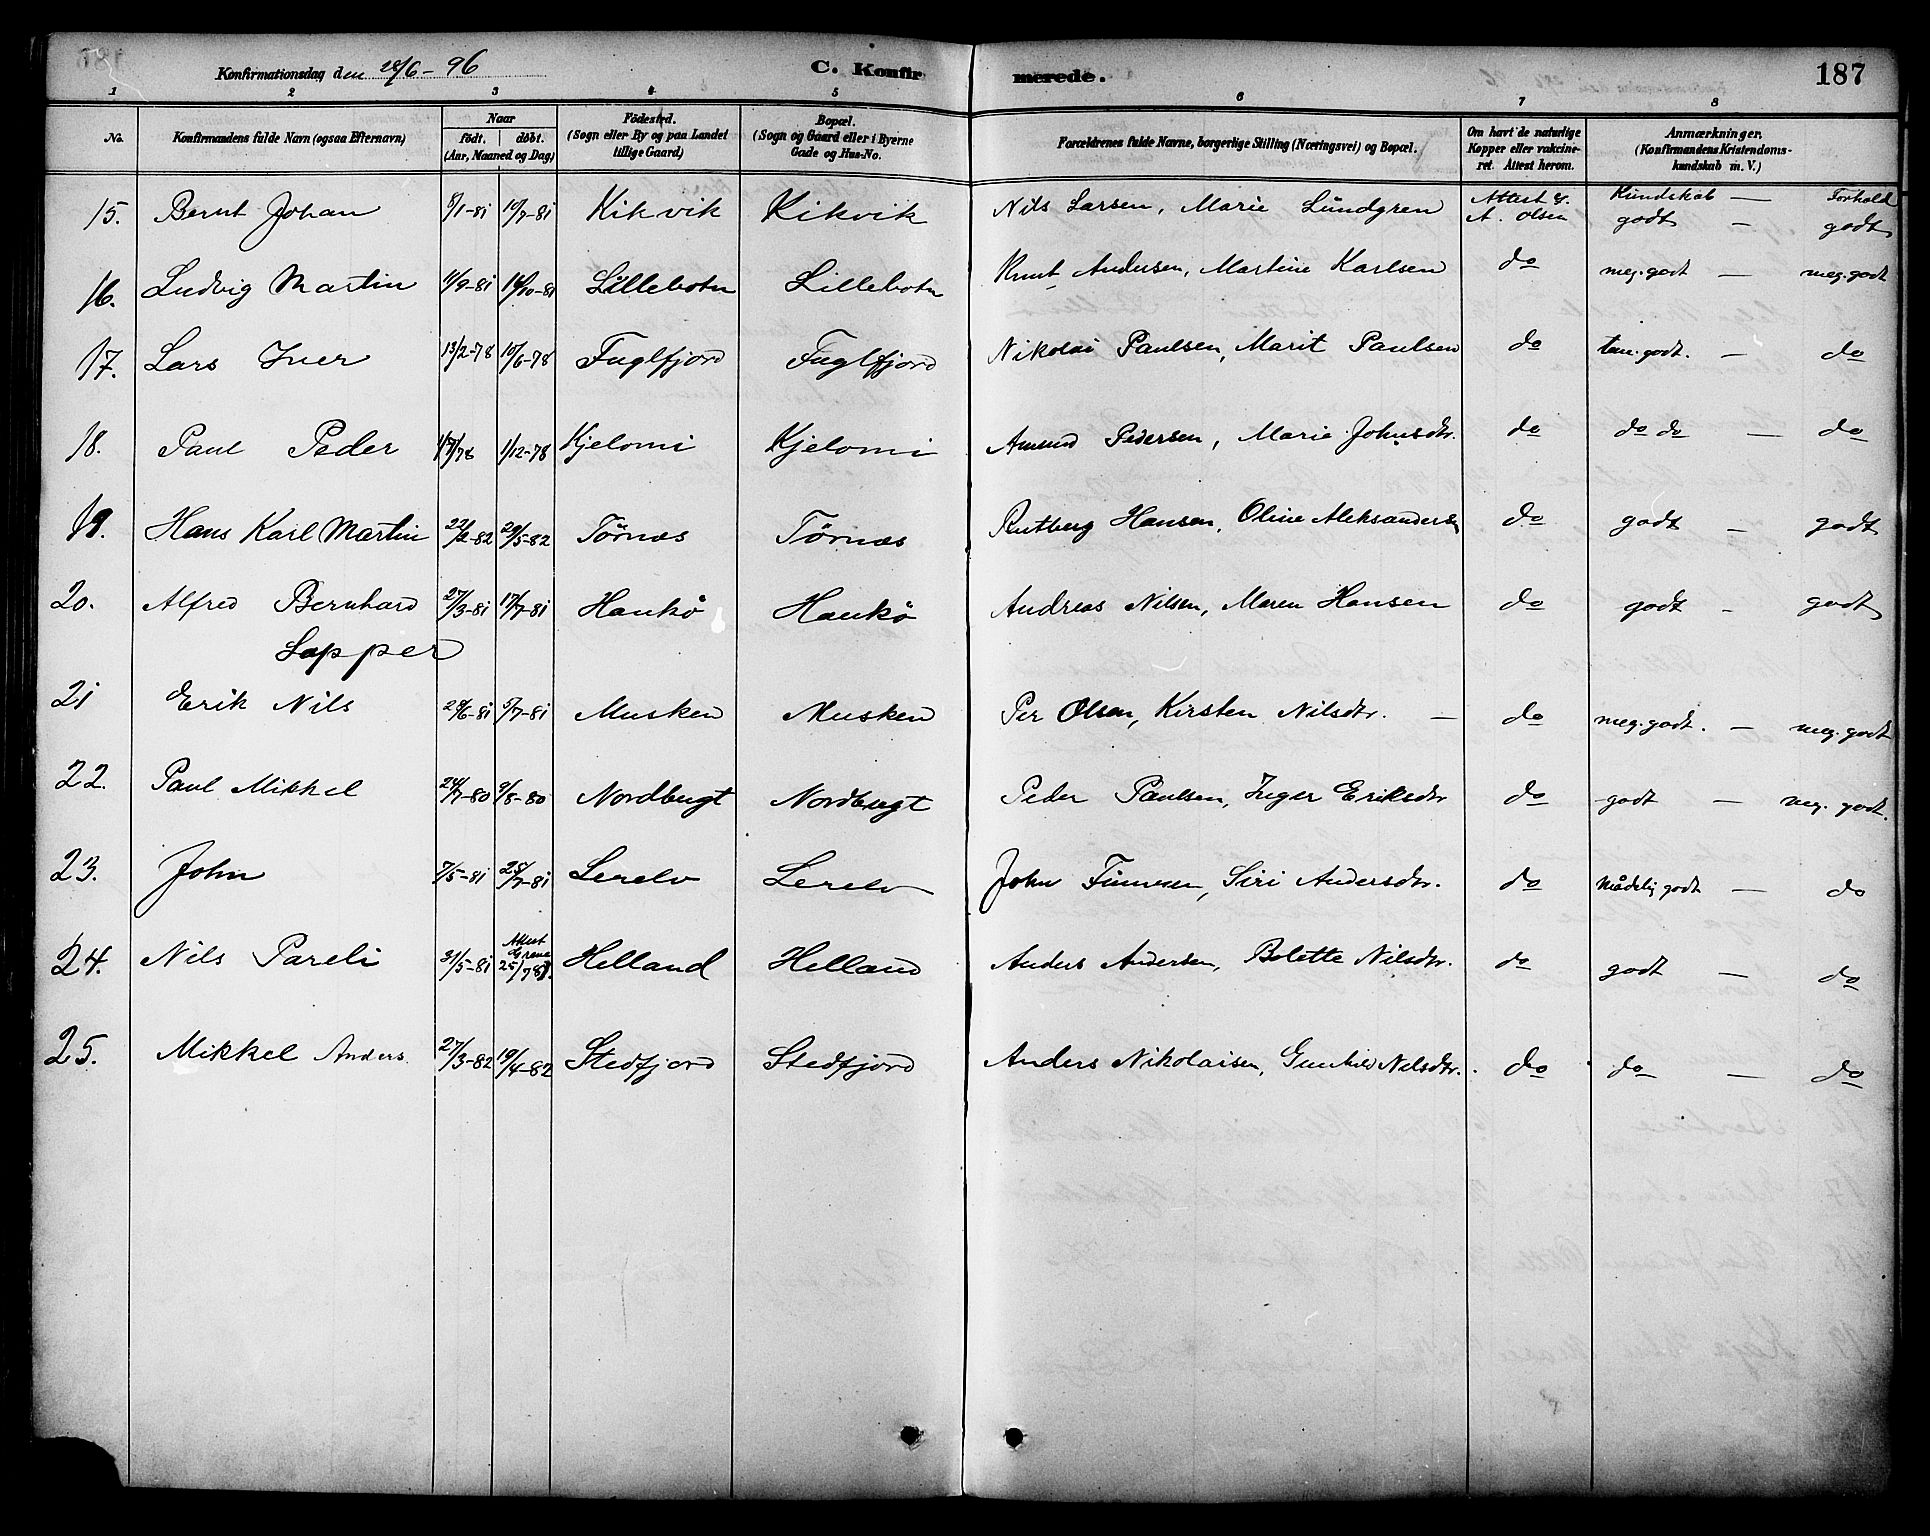 Konfirmationsdag den 28/6 - 96 C. Konfirmerede. 187
1 2 3 4 5 6 7 8
No. Konfirmandens fulde Navn (ogsaa Efternavn) Naar født. døbt. (Aar, Maaned og Dag) Fødested. (Sogn eller By og paa Landet tillige Gaard) Bopæl. (Sogn og Gaard eller i Byerne Gade og Hus-No. Forældrenes fulde Navne, borgerlige Stilling (Næringsvei) og Bopæl. Om havt de naturlige Kopper eller vakcineret. Attest herom. Anmærkninger. (Konfirmandens Kristendomskundskab m. V.)
Kundskab — Forhold
15. Bernt Johan 8/1-81 10/7-81 Kikvik Kikvik Nils Larsen, Marie Lundgren Attest A. Olsen godt — godt
16. Ludvig Martin 11/9-81 16/10-81 Lillebotn Lillebotn Knut Andersen, Martine Karlsen do meg. godt — meg. godt
17. Lars Iver 13/2-78 10/6-78 Fuglfjord Fuglfjord Nikolai Paulsen, Marit Paulsen do tem. godt. — do
18. Paul Peder 1/12-78 Kjelomi Kjelomi Amund Pedersen, Marie Johnsdtr. do do do — do
19. Hans Karl Martin 22/2-82 29/5-82 Tørnæs Tørnæs Rutberg Hansen, Oline Aleksandersen do godt — godt
20. Alfred Bernhard 27/3-81 17/7-81 Haukö Haukö Andreas Nilsen, Maren Hansen do godt - godt
Lapper
21 Erik Nils 28/6-81 5/7-81 Musken Musken Per Olsen, Kirsten Nilsdtr. — do meg. godt. — meg. godt
22. Paul Mikkel 24/7-80 9/8-80 Nordbugt Nordbugt Peder Paulsen, Inger Eriksdtr do godt — meg. godt.
23. John 7/5-81 25/7-81 Lerelv Lerelv John Finnesen, Siri Andersdtr. do mådelig godt — do
24. Nils Pareli 31/5-81 Attest 25/7 81. Helland Helland Anders Andersen, Bolette Nilsdtr. do godt — do
25. Mikkel Anders. 27/3-82 19/4-82 Stedfjord Stedfjord Anders Nikolaisen, Gunhild Nilsdtr. do do — do